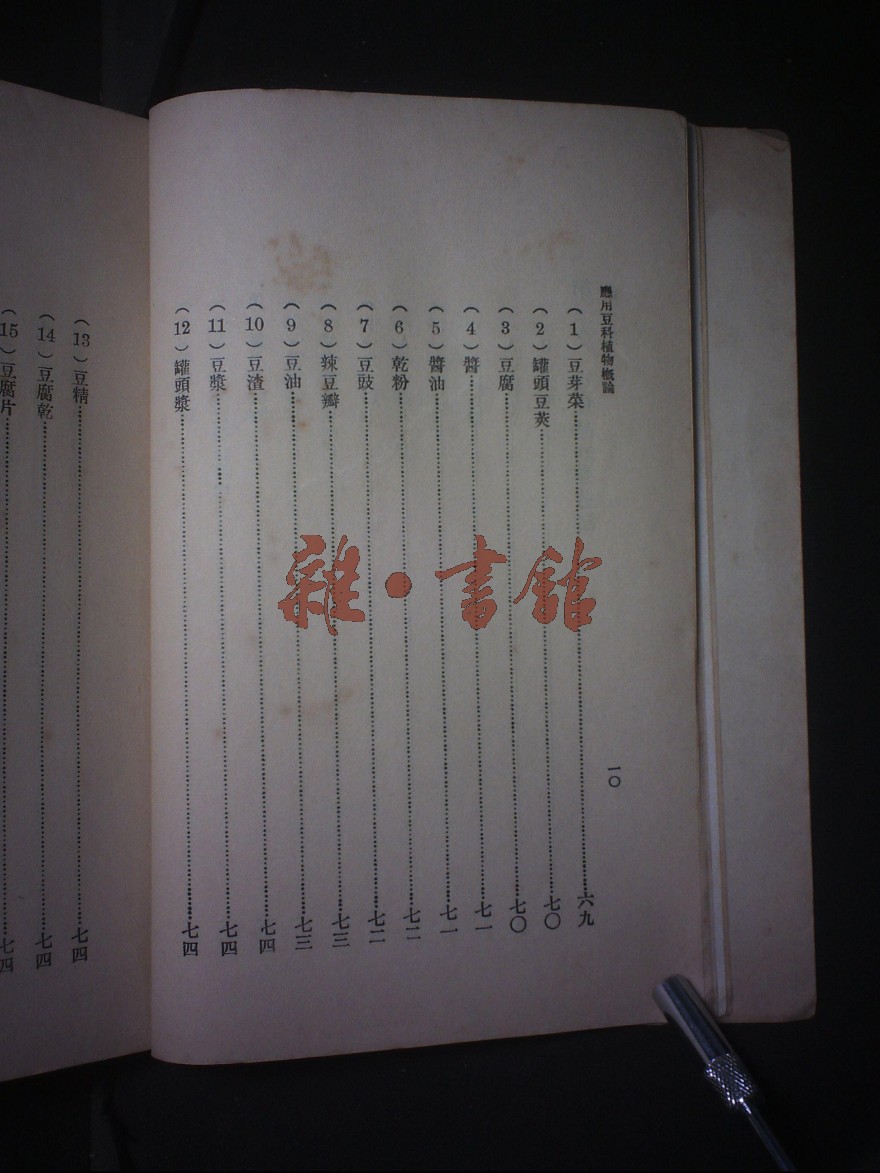 應用豆科植物概論
一〇
(1)豆芽菜……六九
(2)罐頭豆莢……七〇
(3)豆腐……七〇
(4)醬……七一
(5)醬油……七一
(6)乾粉……七二
(7)豆豉……七二
(8)辣豆瓣……七三
(9)豆油……七三
(10)豆渣……七四
(11)豆漿……七四
(12)罐頭漿……七四
(13)豆精……七四
(14)豆腐乾……七四
(15)豆腐片……七四
雜·書館